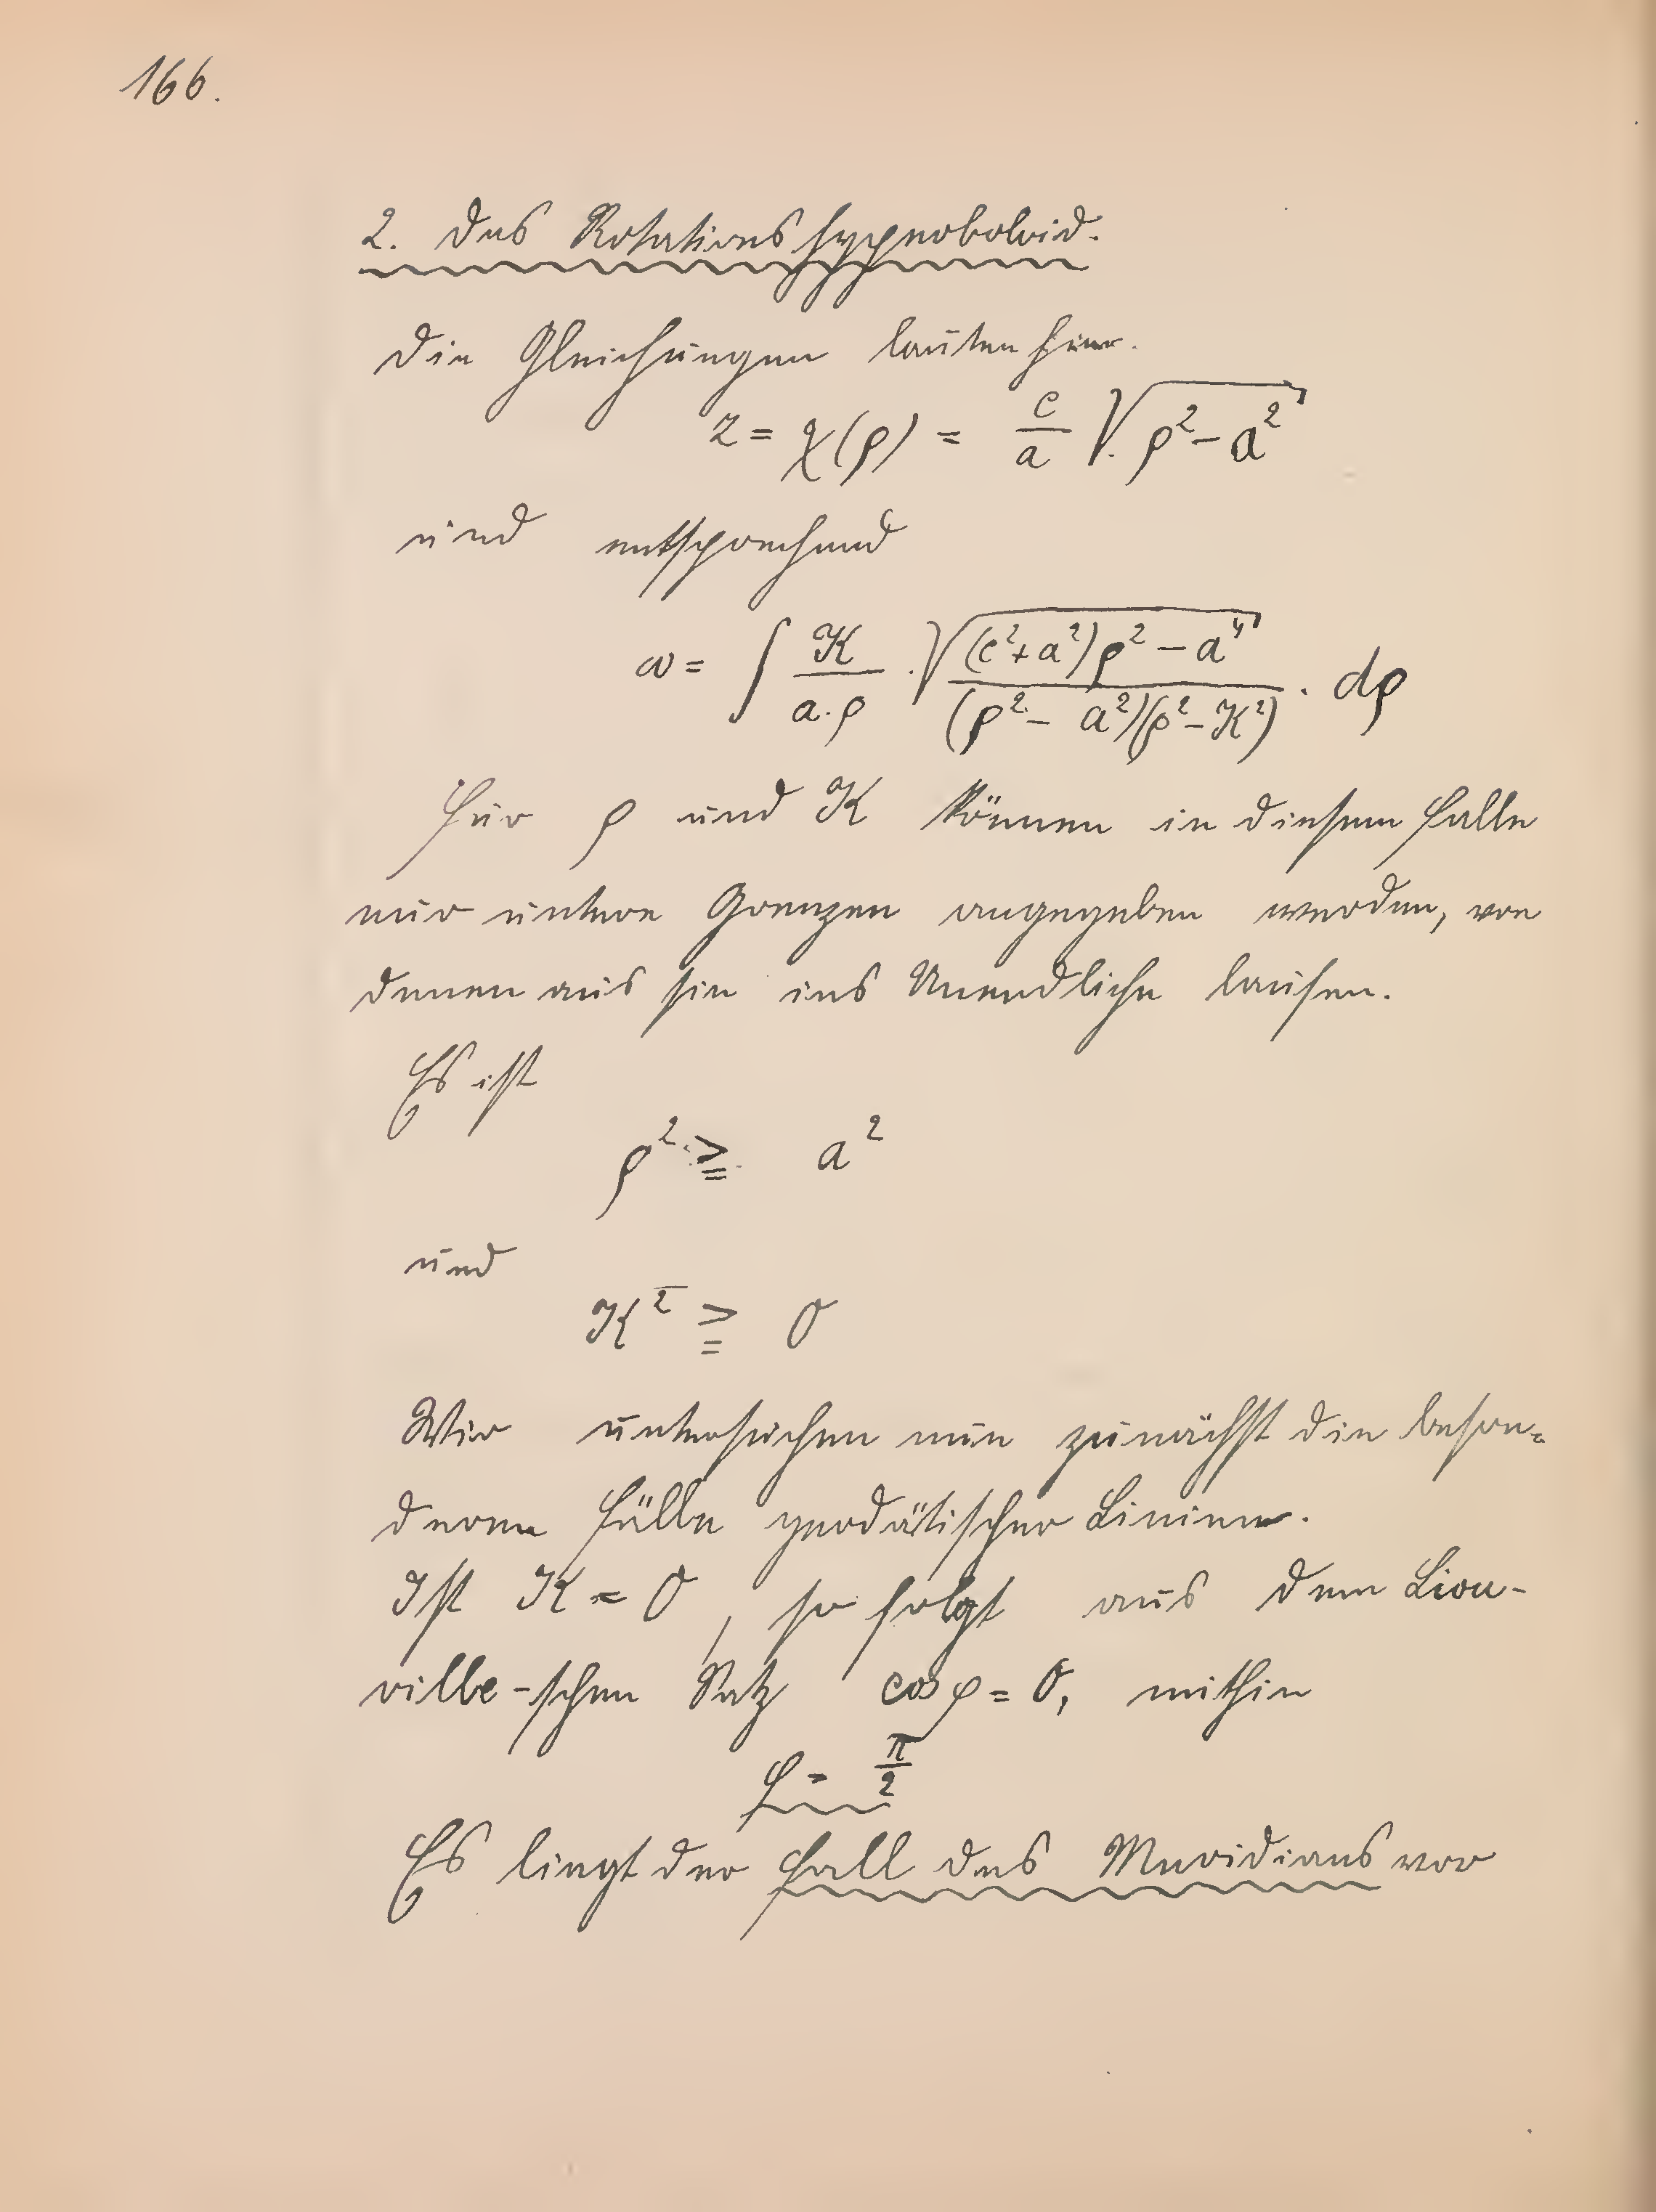 166.
2. Das Rotationshyperboloid.
Die Gleichungen lauten hier.
z = χ(ρ) = c/a √(ρ² − a²)
und entsprechend
ω = ∫ K/(a·ρ) · √(((c²+a²)ρ² − a⁴)/((ρ² − a²)(ρ² − K²))) · dρ
Für ρ und K können in diesem Falle
nur untere Grenzen angegeben werden, von
denen aus sie ins Unendliche laufen.
Es ist
ρ² ≧ a²
und
K² ≧ 0
Wir untersuchen nun zunächst die beson-
deren Fälle geodätischer Linien.
Ist K = 0, so folgt aus dem Liou-
ville-schen Satz cos φ = 0, mithin
φ = π/2
Es liegt der Fall des Meridians vor